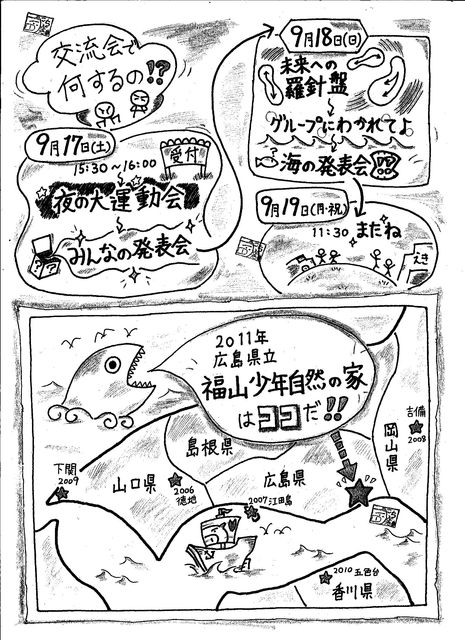 交流会で
何するの!?
9月17日(土)
15:30~16:00
受付
夜の大運動会
みんなの発表会
??
9月18日(日)
未来への
羅針盤
グループにわかれてよ
海の発表会
?
9月19日(月・祝)
11:30 またね
えき
2011年
広島県立
福山少年自然の家
はココだ!!
島根県
広島県
岡山県
吉備
2008
山口県
2006
徳地
下関
2009
2007江田島
2010 五色台
香川県